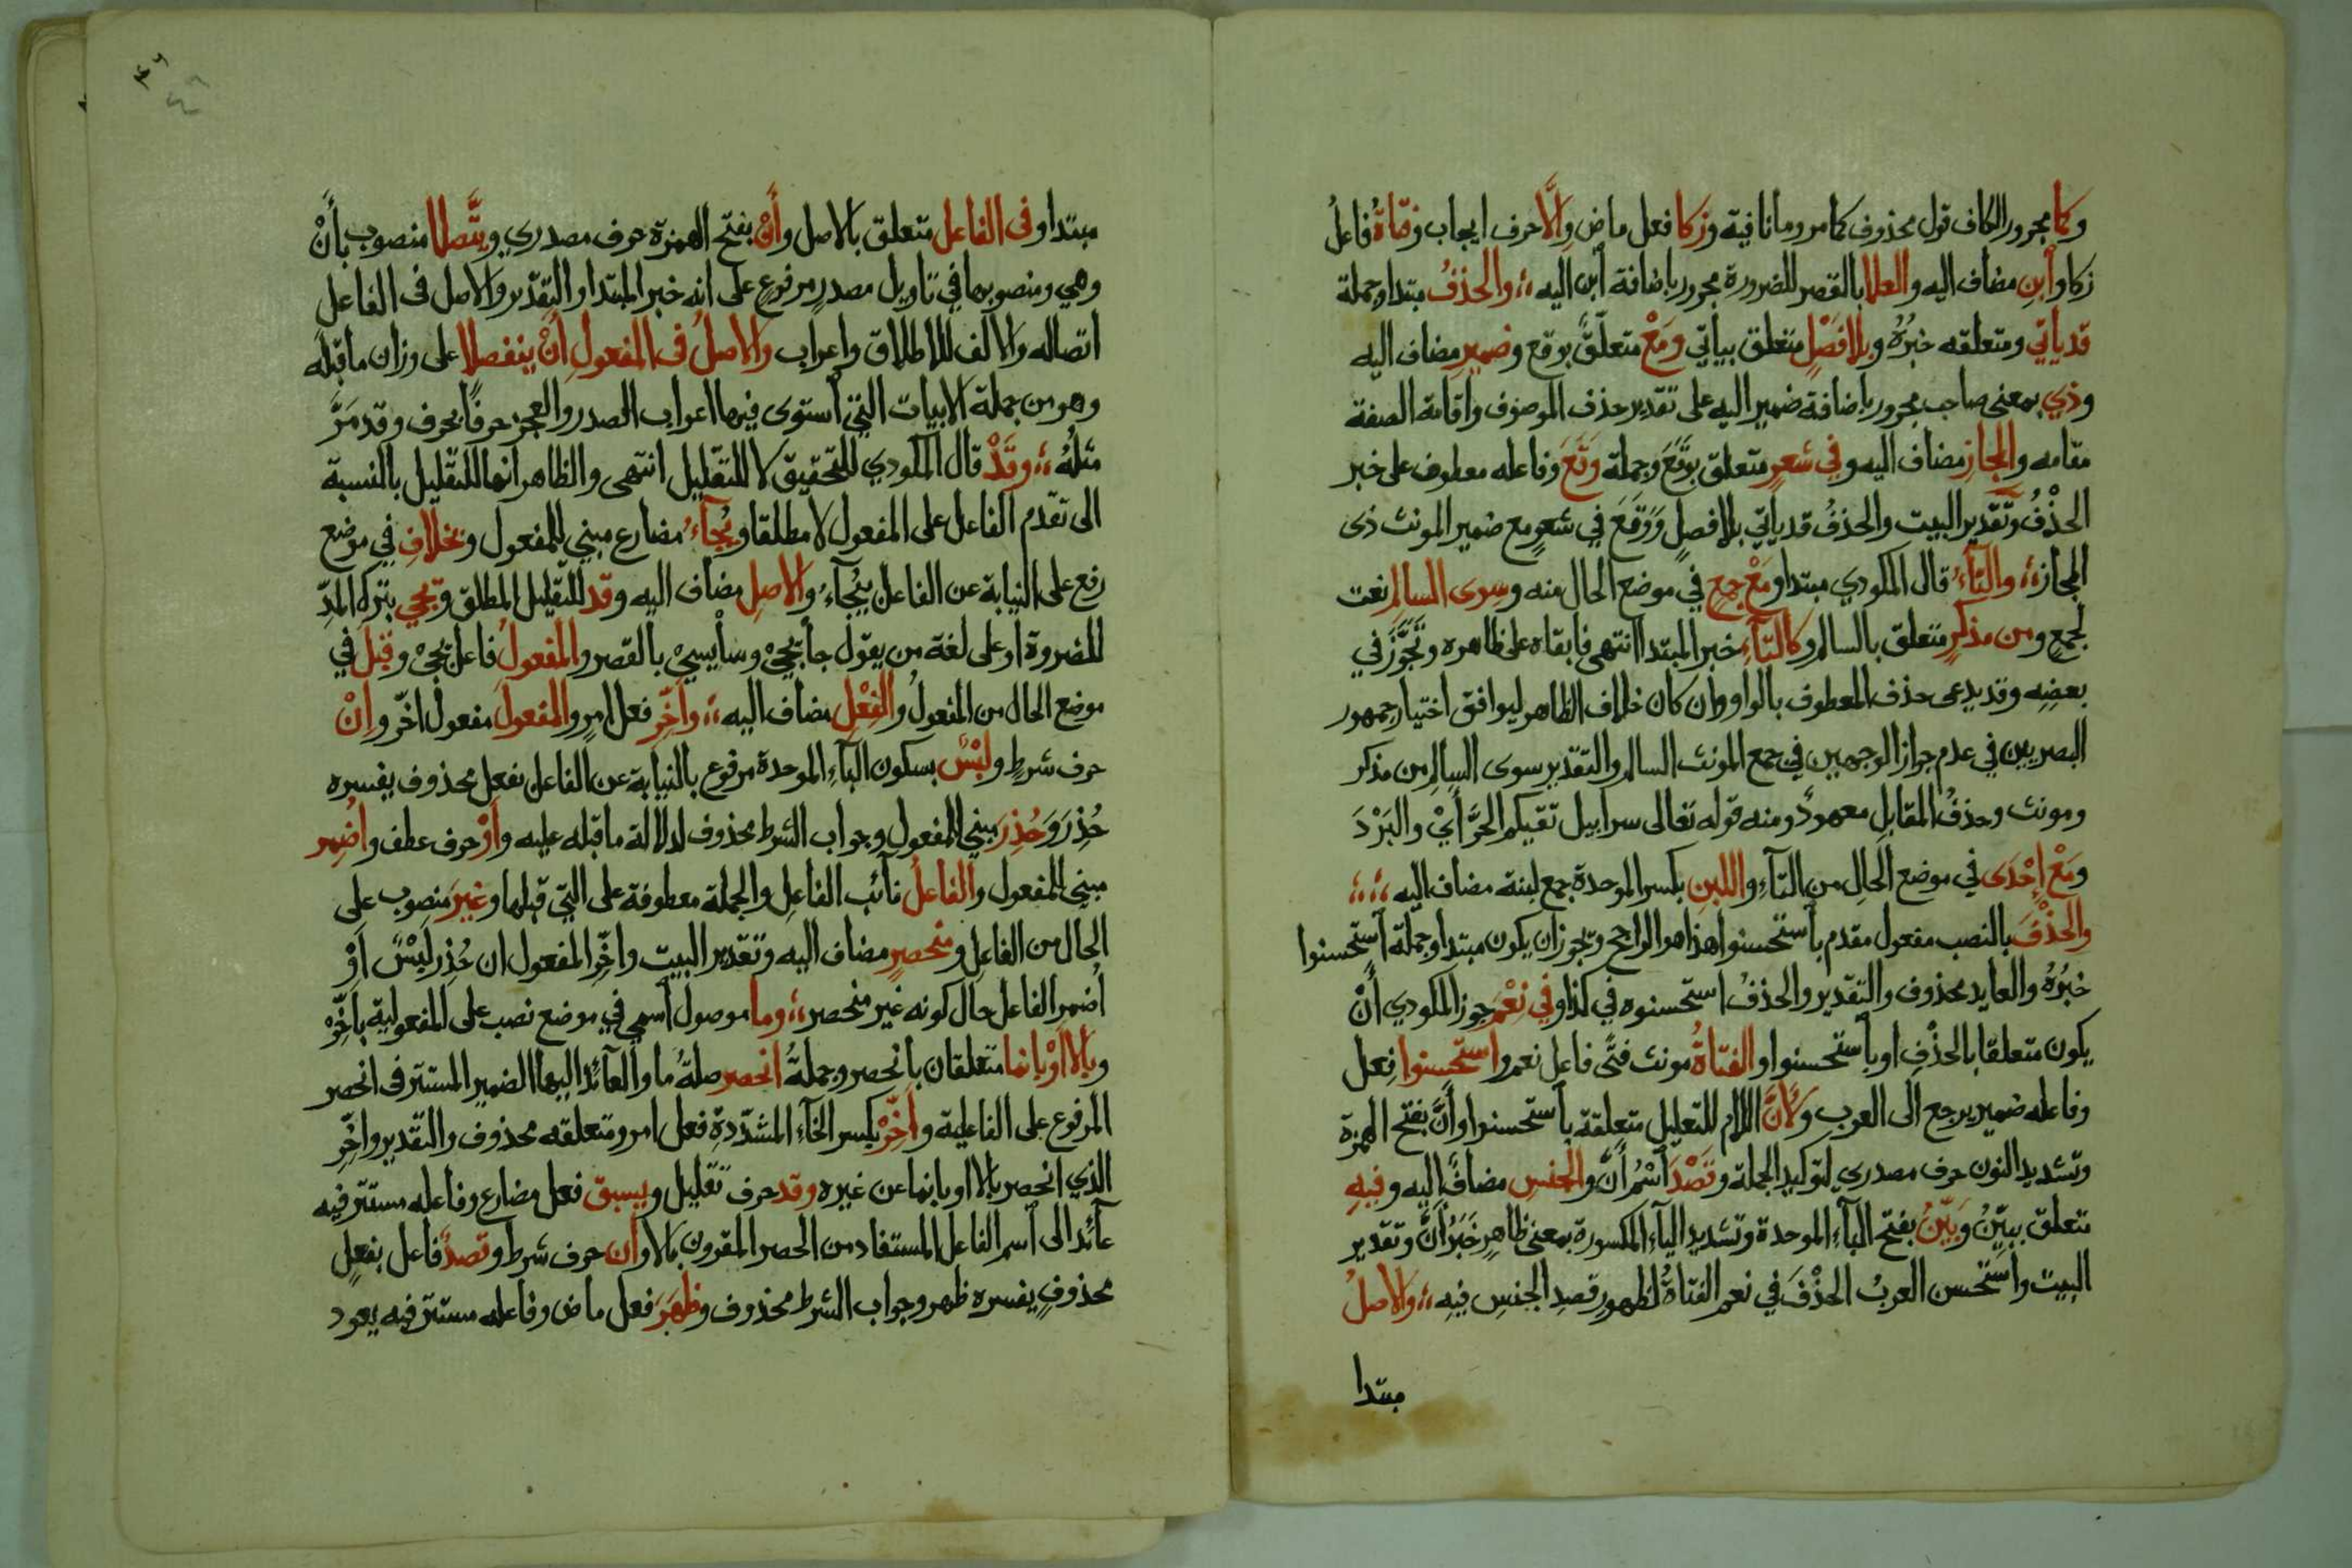 وكما مجرور الكاف قول محذوف كما مر وما نافية وزكا فعل ماض والّا حرف ايجاب وفتاةُ فاعلُ
زكا وابنِ مضاف اليه والعلا بالقصر للضرورة مجرور باضافة ابن اليه ؛ والحذفُ مبتدا وجملة
قد ياتي ومتعلقه خبرُهُ وبلا فَصْلٍ متعلق بيأتي ومَعْ متعلّقٌ بوقع وضميرِ مضاف اليه
وذي بمعنى صاحب مجرور باضافة ضمير اليه على تقدير حذف الموصوف واقامة الصفة
مقامه والمجازِ مضاف اليه وفي شعرٍ متعلق بوَقَعَ وجملة وَقَعَ وفاعله معطوف على خبر
الحذْفُ وتقدير البيت والحذفُ قد ياتي بلا فصلٍ وَوَقَعَ في شعرٍ مع ضمير المونث ذى
المجاز ؛ والتّآءُ قال المكودي مبتدا ومَعْ جمعٍ في موضع الحال منه وسوى السالمِ نعت
لجمعٍ ومن مذكرٍ متعلق بالسالم وكالتآءِ خبر المبتدا انتهى فابقاه على ظاهره وتَجَوَّزَ في
بعضِهِ وقد يدعى حذف المعطوف بالواو وان كان خلاف الظاهر ليوافق اختيار جمهور
البصريين في عدم جواز الوجهين في جمع المونث السالم والتقدير سوى السالمِ من مذكر
ومونث وحذفُ المقابلِ معهودٌ ومنه قوله تعالى سرابيل تقيكم الحَرَّ أَيْ والبَرْدَ
ومَعْ إحْدَى في موضع الحالِ من التآءِ واللبنِ بكسر الموحدة جمع لبنة مضاف اليه ؛ ؛ ؛
والحذْفَ بالنصب مفعول مقدم بأستحسنوا هذا هو الراجح ويجوز ان يكون مبتدا وجملة أستحسنوا
خبرُهُ والعايد محذوف والتقدير والحذفُ استحسنوه في كذا وفي نِعْمَ جوز المكودي أَنْ
يكون متعلقا بالحذْفِ او بأستحسنوا والفتاةُ مونث فتًى فاعل نعم واستحسنوا فِعل
وفاعله ضمير يرجع الى العرب ولأنَّ اللام للتعليل متعلقة بأستحسنوا وأَنَّ بفتح الهمزة
وتشديد النون حرف مصدري لتوكيد الجملة وقَصْدَ أسْمُ أنَّ والجنسِ مضافٌ اليه وفيهِ
متعلق ببيّنُ وَبَيّنُ بفتح البآءِ الموحدة وتشديد اليآءِ المكسورة بمعنى ظاهرٍ خَبَرُ أنَّ وتقدير
البيت واستحسن العربُ الحذْفَ في نعم الفتاةُ لظهورِ قصدِ الجنسِ فيه ؛ والاصلُ
مبتدا
مبتدا وفى الفاعل متعلق بالاصل وأَنْ بفتح الهمزة حرف مصدري ويتَّصلا منصوب بأَنْ
وهي ومنصوبها في تاويل مصدرٍ مرفوعٍ على انه خبر المبتدا والتقدير والاصل فى الفاعل
اتصاله والالف للاطلاق واعراب والاصلُ فى المفعولِ أنْ ينفصلا على وزان ما قبله
وهو من جملة الابيات التي أستوى فيها اعراب الصدر والعجز حرفًا بحرف وقد مَرَّ
مثلُهُ ؛ وقَدْ قال المكودي للتحقيق لا للتقليل انتهى والظاهر انها للتقليل بالنسبة
الى تقدم الفاعل على المفعول لا مطلقا ويُجَآءُ مضارع مبني للمفعول وبخلافِ في موضع
رفع على النيابة عن الفاعل بيُجَآءُ والاصلِ مضاف اليه وقد للتقليل المطلق ويجي بترك المدّ
للضروة او على لغة من يقول جا يجيْ وسا يسيْ بالقصر والمفعولُ فاعل يجيْ وقبلَ في
موضع الحال من المفعولُ والفِعْلِ مضاف اليه ؛ واَخّرِ فعل امرٍ والمفعولَ مفعول اخّر واِنْ
حرف شرطٍ ولَبْسٌ بسكون البآءِ الموحدة مرفوع بالنيابة عن الفاعل بفعل محذوف يفسره
حُذِرَ وَحُذِرَ مبني للمفعول وجواب الشرط محذوف لدلالة ما قبله عليه وأَوْ حرف عطف واُضمِر
مبني للمفعول والفاعلُ نآئب الفاعلِ والجملة معطوفة على التي قبلها وغيرَ منصوب على
الحال من الفاعلِ ومنحصرِ مضاف اليه وتقدير البيت واخّرِ المفعول ان حُذِر لَبْسٌ اَوْ
أضمر الفاعل حال كونه غير منحصر ؛ وما موصول أسمي في موضع نصب على المفعولية بأخّرْ
وبالا اَوْ بإنما متعلقان بأنحصر وجملةُ انحصر صلةُ ما والعآئد اليها الضمير المستتر فى انحصر
المرفوع على الفاعلية وأَخّرْ بكسر الخآءِ المشدّدةِ فعل امر ومتعلقه محذوف والتقدير واخّرِ
الذي انحصر بالا او بانما عن غيره وقد حرف تقليل ويسبق فعل مضارع وفاعله مستتر فيه
عآئد الى أسم الفاعل المستفاد من الحصر المقرون بالا وأن حرف شرط وقصدٌ فاعل بفعلٍ
محذوفٍ يفسره ظهر وجواب الشرط محذوف وظَهَرَ فعل ماض وفاعله مستتر فيه يعود